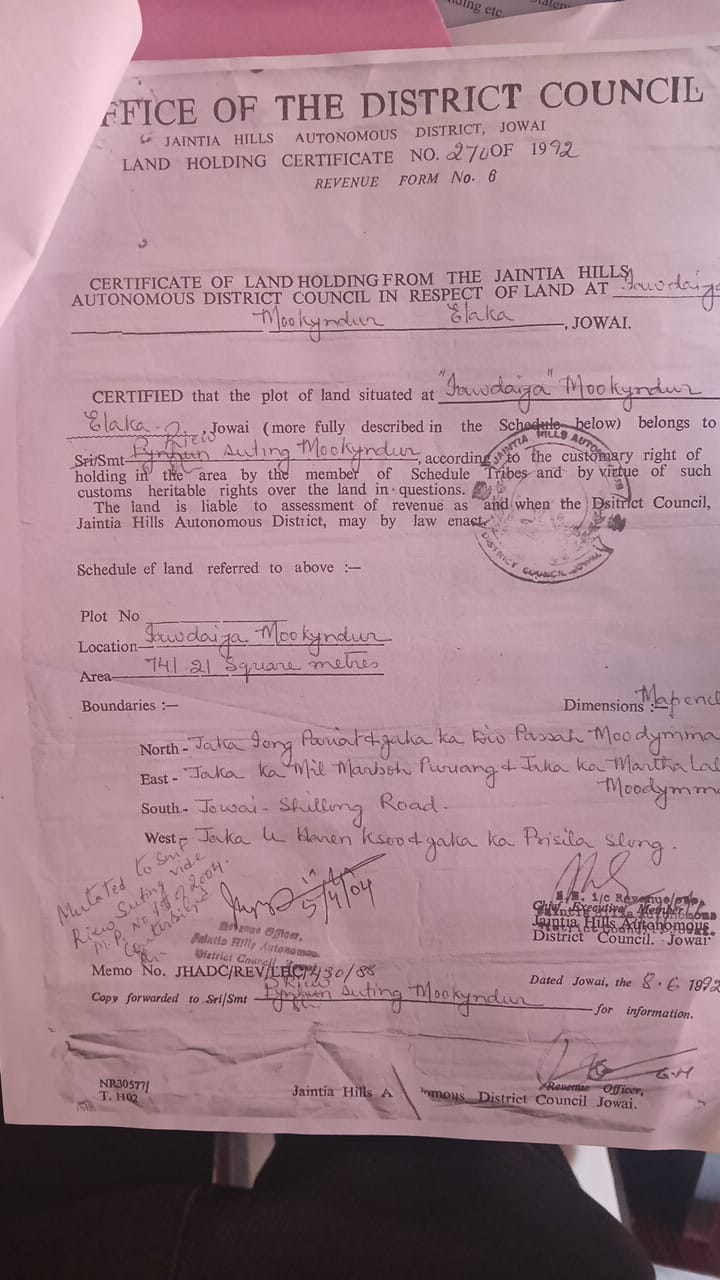 ding etc.
FFICE OF THE DISTRICT COUNCIL
JAINTIA HILLS AUTONOMOUS DISTRICT, JOWAI
LAND HOLDING CERTIFICATE NO. OF 1992
REVENUE FORM No. 6
CERTIFICATE OF LAND HOLDING FROM THE JAINTIA HILLS
AUTONOMOUS DISTRICT COUNCIL IN RESPECT OF LAND AT Iawdaiga
Mookyndur Elaka, JOWAI.
CERTIFIED that the plot of land situated at "Iawdaiga" Mookyndur
Elaka, Jowai (more fully described in the Schedule below) belongs to
Riew
Sri/Smt Pynhun Suting Mookyndur, according to the customary right of
holding in the area by the member of Schedule Tribes and by virtue of such
customs heritable rights over the land in questions.
The land is liable to assessment of revenue as and when the Dsitrict Council,
Jaintia Hills Autonomous District, may by law enact.
JAINTIA HILLS AUTONO
DISTRICT COUNCIL JOWAI
Schedule ef land referred to above :—
Plot No
Location— Iawdaiga Mookyndur
Area— 741.21 Square metres
Boundaries :—
Dimensions :— Mapencl
North - Jaka Iong Pariat & jaka ka Passah Moodymma
East - Jaka ka Mil Manboh Puriang & Jaka ka Martha Lal
Moodymm
South - Jowai - Shillong Road.
West - Jaka u Heren Ksoo & jaka ka Prisila Slong.
Mutated to Smt
Riew Suting vide
M.P. No of 2004.
5/4/04
Revenue Officer,
Jaintia Hills Autonomou.
District Council
I/c Revenue
Chief Executive Member
Jaintia Hills Autonomous
District Council. Jowai
Memo No. JHADC/REV/LHC/430/88
Dated Jowai, the 8.6 1992
Riew
Copy forwarded to Sri/Smt Pynhun Suting Mookyndur for information.
Revenue Officer,
Jaintia Hills A mous District Council Jowai.
NR30577/
T. H02